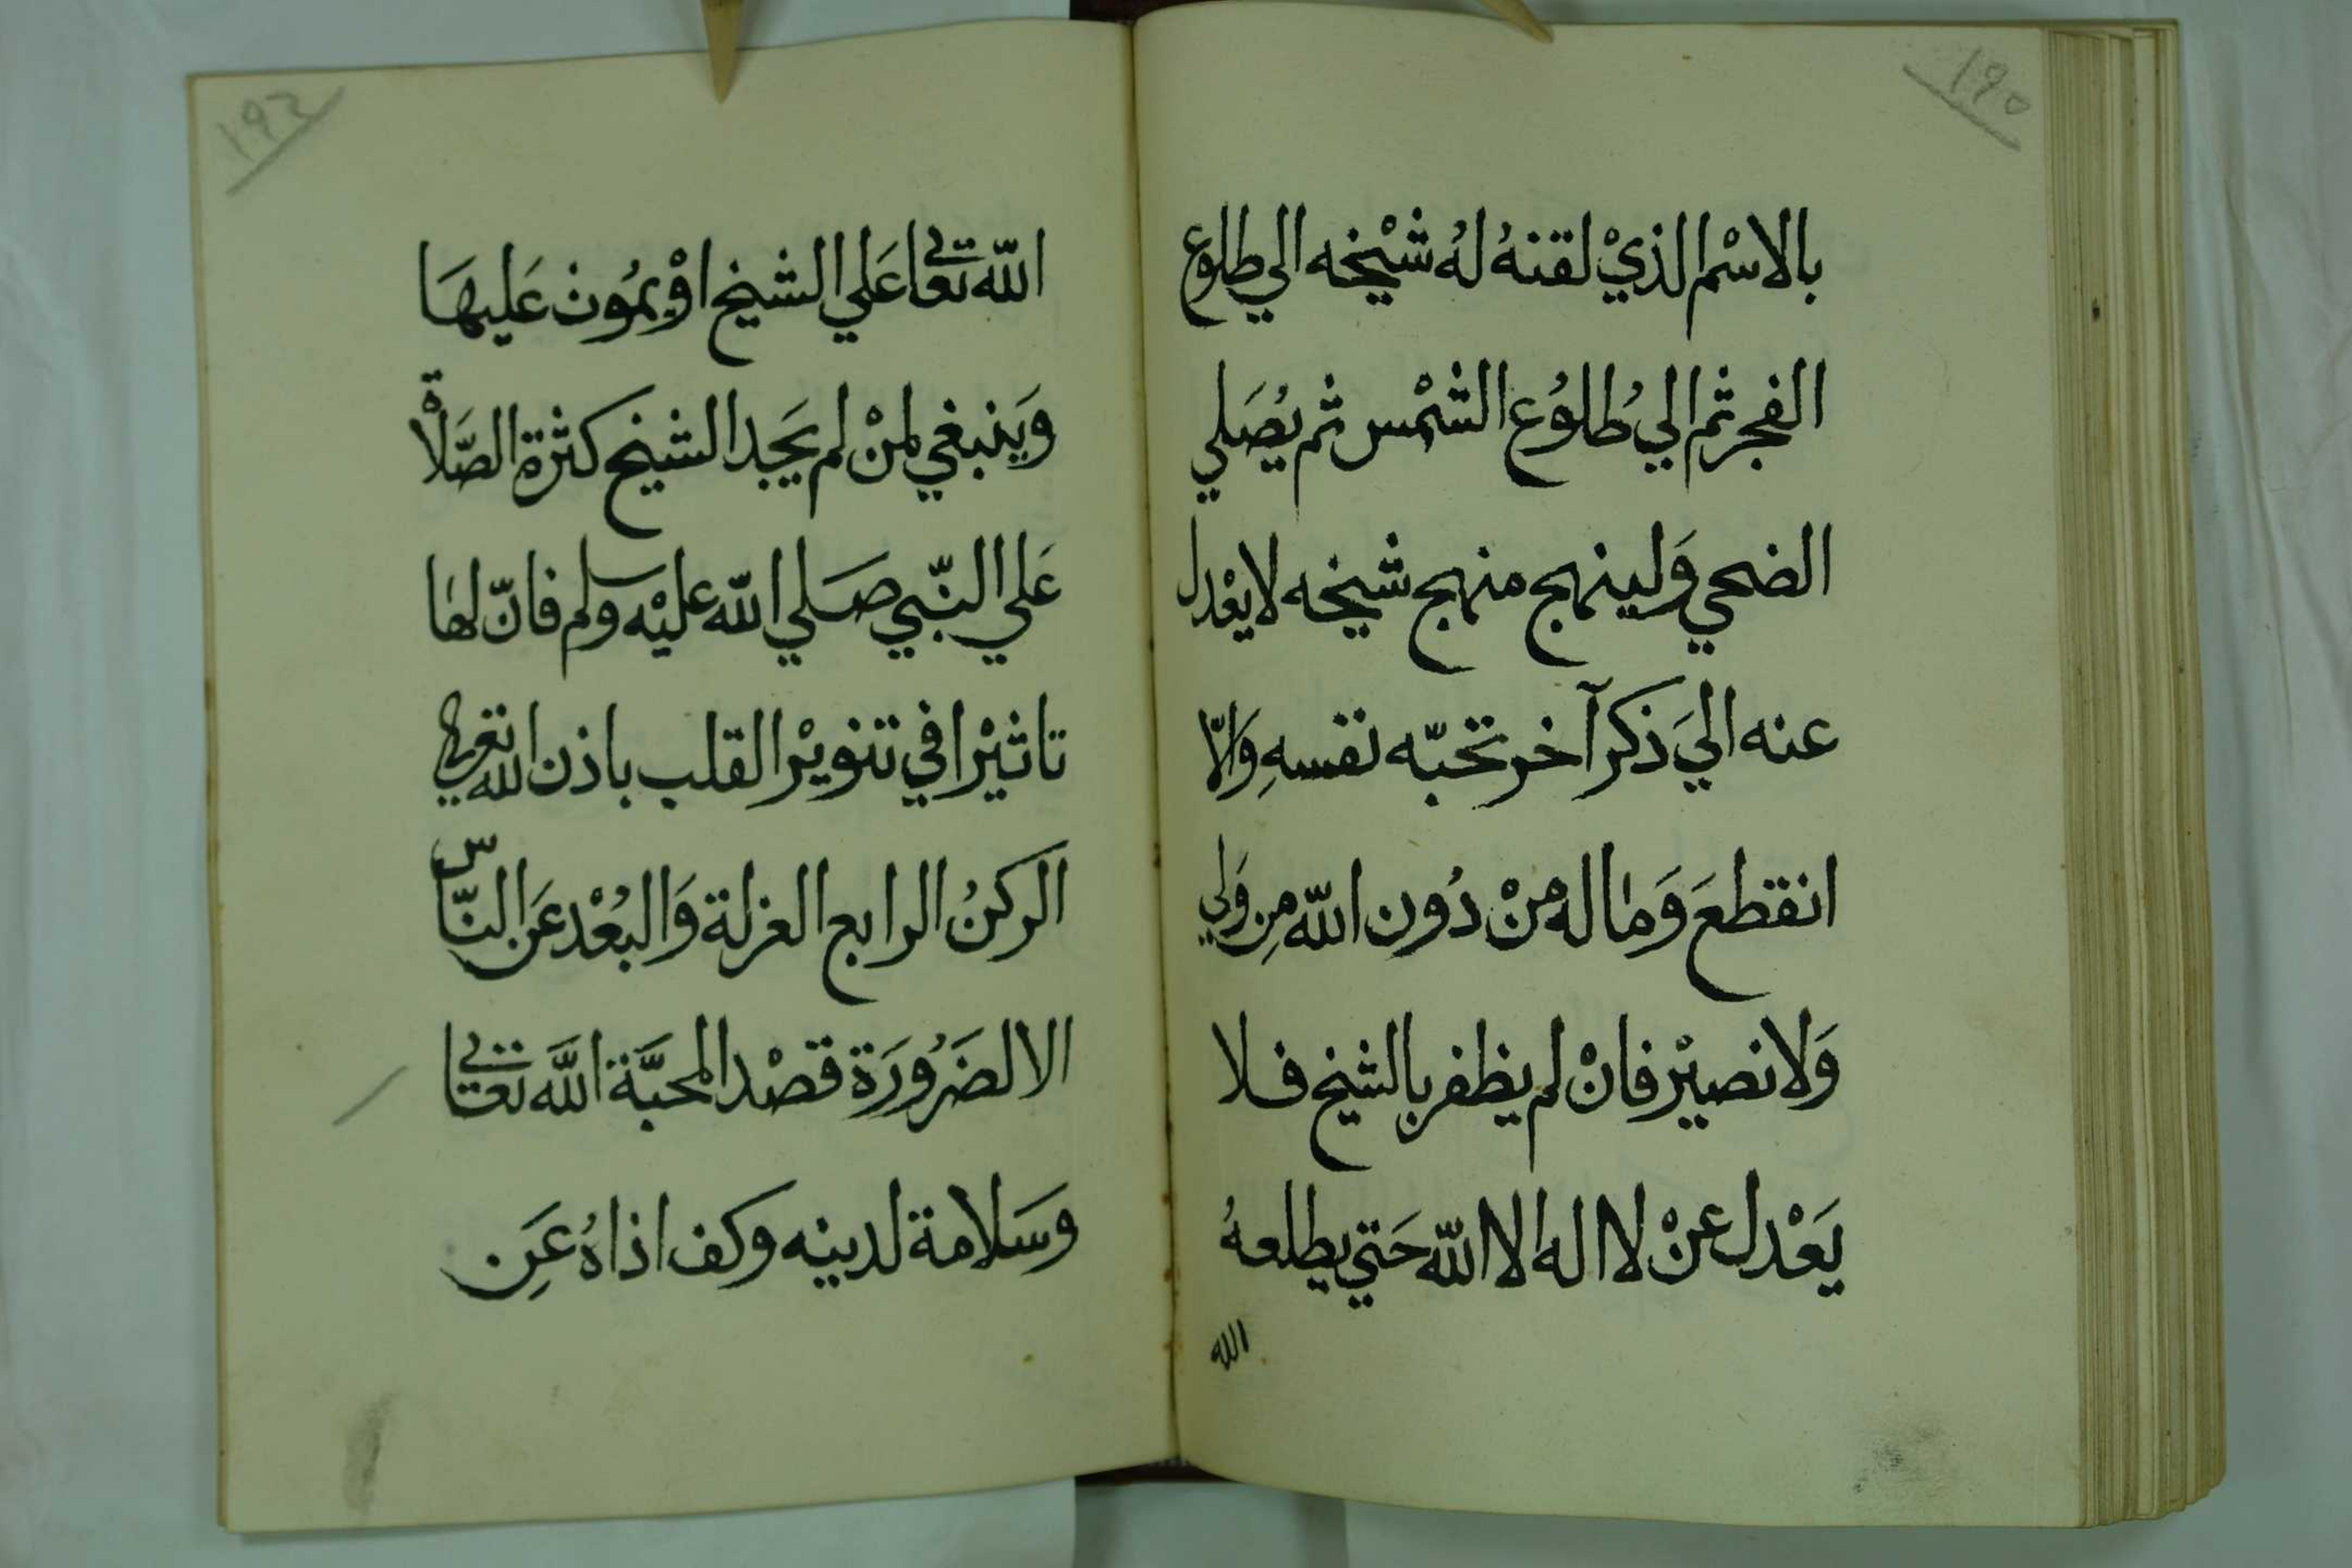 ١٩٥
بالاسْم الذيْ لقنهُ لهُ شيْخه الي طلوع
الفجر ثم الي طُلوُع الشمْس ثم يُصَلي
الضحي وَلينهج منهج شيخه لا يعْدل
عنه الىَ ذكر آخر تحبّه نفسهِ وَالّا
انقطعَ وَماله منْ دُون اللّه مِن وَلي
وَلا نصيْر فانْ لم يظفر بالشيخ فلا
يَعْدل عنْ لا اله الا اللّه حَتي يطلعهُ
الله
اللّه تعالي عَلي الشيخ اوْ يموُن عَليهَا
وَينبغي لمنْ لم يَجد الشيخ كثرة الصَّلاْة
عَلي النّبي صَلي اللّه عليْه وسلم فانّ لها
تاثيْرا في تنويْر القلب باذن الله تعالي
الركنُ الرابع العزلة وَالبُعْد عَن النّاس
الا لضَرُورَة قصْد المحبَّة اللَّه تعالي
وسَلامة لدينه وكف اذاهُ عَن